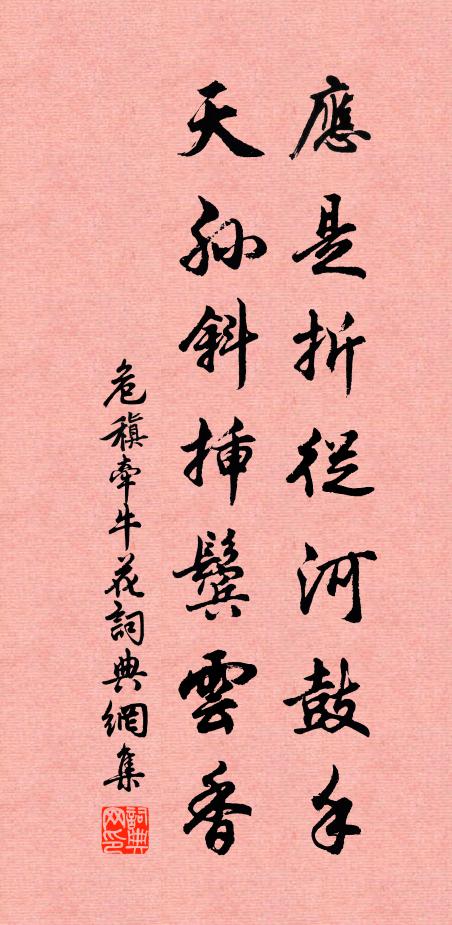 應是折從河鼓手
天孫斜挿鬢雲香
危稹牽牛花詞典網集
詞典网印